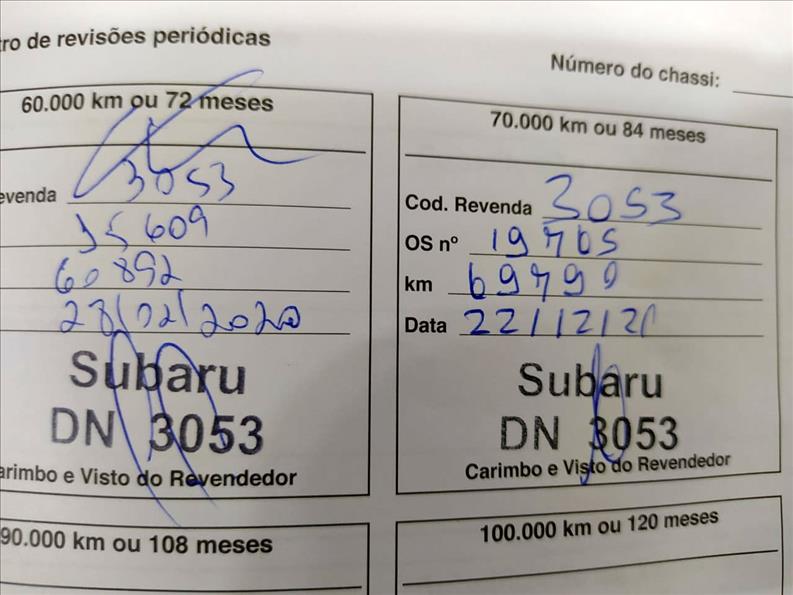 tro de revisões periódicas
Número do chassi:
60.000 km ou 72 meses
evenda 3053
15609
60892
28/02/2020
Subaru
DN 3053
arimbo e Visto do Revendedor
70.000 km ou 84 meses
Cod. Revenda 3053
OS nº 19705
km 69799
Data 22/12/21
Subaru
DN 3053
Carimbo e Visto do Revendedor
90.000 km ou 108 meses
100.000 km ou 120 meses